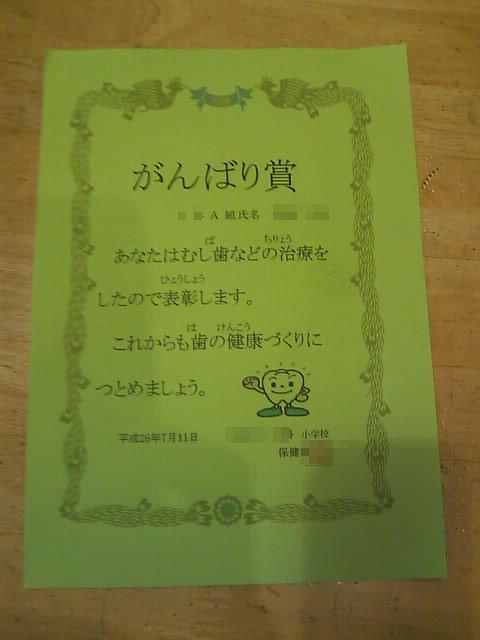 がんばり賞
A 組氏名
あなたはむし歯などの治療を
ば ちりょう
したので表彰します。
ひょうしょう
これからも歯の健康づくりに
は けんこう
つとめましょう。
平成26年7月11日
小学校
保健